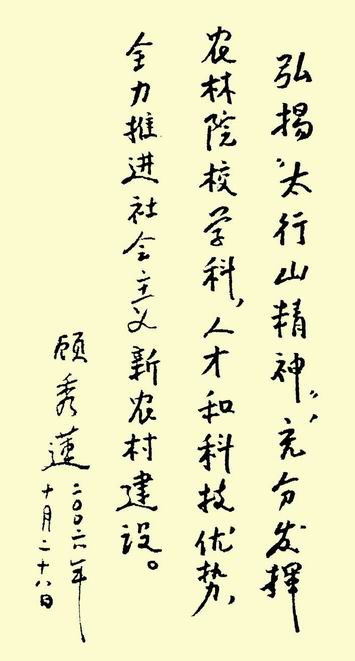 弘揚“太行山精神”，充分发挥
农林院校学科，人才和科技优势，
全力推进社会主义新农村建设。
顾秀莲
二〇〇六年
十月二十八日